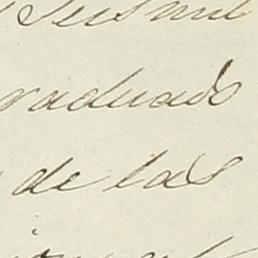 Seis mil
raduado
de las